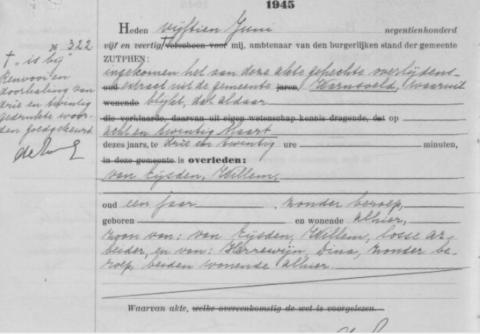 1945
322
† is bij
Renvooi en
doorhaling van
drie en twintig
gedrukte woor-
den goedgekeurd
Heden vijftien Juni negentienhonderd
vijf en veertig verscheen voor mij, ambtenaar van den burgerlijken stand der gemeente
ZUTPHEN:
ingekomen het aan deze akte gehechte overlijdens-
oud extract uit de gemeente jaren, Warnsveld, waaruit
wonende blijkt, dat aldaar
die verklaarde, daarvan uit eigen wetenschap kennis dragende, dat op
acht en twintig Maart
dezes jaars, te drie en twintig ure minuten,
in deze gemeente is overleden:
van Eijsden, Willem,
oud een jaar, zonder beroep,
geboren en wonende alhier,
zoon van: van Eijsden, Willem, losse ar-
beider, en van: Harrewijn, Dina, zonder be-
roep, beiden wonende alhier
Waarvan akte, welke overeenkomstig de wet is voorgelezen.